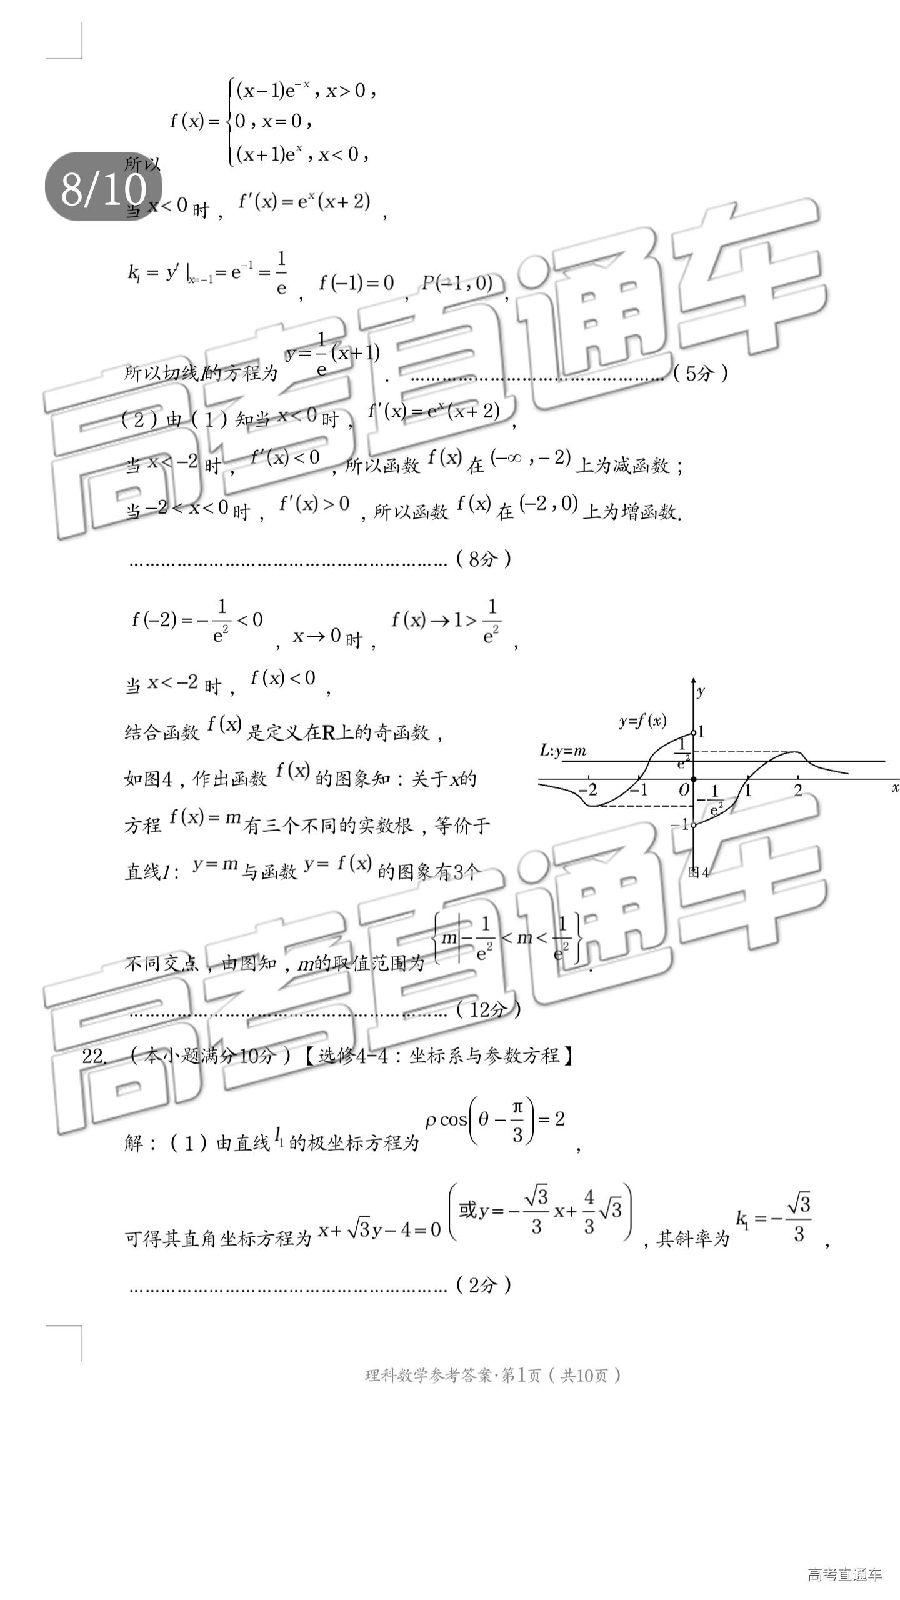 f(x)={(x-1)e^{-x},x>0,
0,x=0,
(x+1)e^x,x<0,
所以
8/10
当x<0时，f′(x)=e^x(x+2)，
k_l=y′|_{x=-1}=e^{-1}=1/e，f(-1)=0，P(-1,0)，
所以切线l的方程为y=1/e(x+1)．……………………………………（5分）
（2）由（1）知当x<0时，f′(x)=e^x(x+2)，
当x<-2时，f′(x)<0，所以函数f(x)在(-∞,-2)上为减函数；
当-2<x<0时，f′(x)>0，所以函数f(x)在(-2,0)上为增函数.
……………………………………………………（8分）
f(-2)=-1/e²<0，x→0时，f(x)→1>1/e²，
当x<-2时，f(x)<0，
结合函数f(x)是定义在R上的奇函数，
如图4，作出函数f(x)的图象知：关于x的
方程f(x)=m有三个不同的实数根，等价于
直线l：y=m与函数y=f(x)的图象有3个
不同交点，由图知，m的取值范围为{m|-1/e²<m<1/e²}．
……………………………………………………（12分）
y
y=f(x)
1
L:y=m
1/e²
-2 -1 O -1/e² 1 2 x
-1
图4
22. （本小题满分10分）【选修4-4：坐标系与参数方程】
解：（1）由直线l₁的极坐标方程为ρcos(θ-π/3)=2，
可得其直角坐标方程为x+√3y-4=0(或y=-√3/3x+4/3√3)，其斜率为k₁=-√3/3，
……………………………………………………（2分）
理科数学参考答案·第1页（共10页）
高考直通车
高考直通车
高考直通车